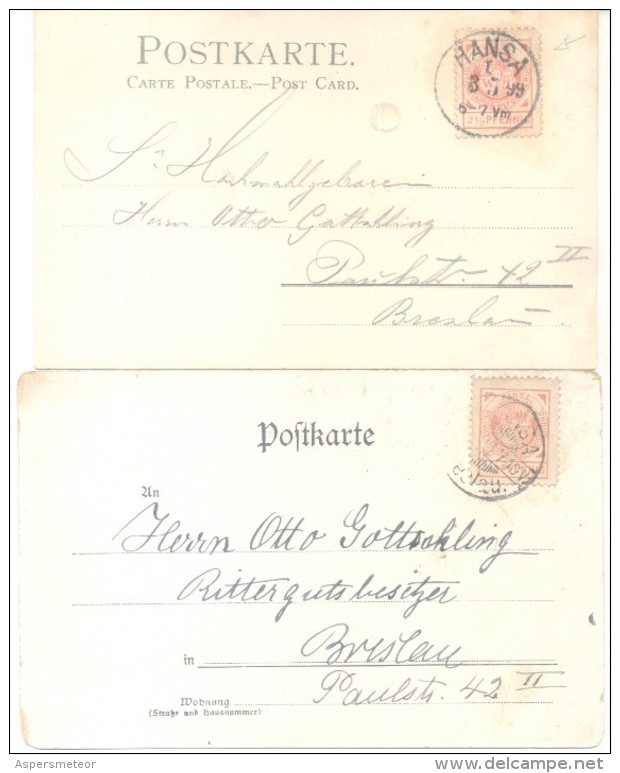 POSTKARTE.
CARTE POSTALE.—POST CARD.
HANSA
I.
99
6-7 Vm
2½ PFENNIG
Sr. Hochwohlgeboren
Herrn Otto Gottschling
Paulstr. 42 II
Breslau.
Postkarte
An
Herrn Otto Gottschling
Rittergutsbesitzer
in Breslau
Paulstr. 42 II
Wohnung
(Straße und Hausnummer)
Aspersmeteor
www.delcampe.net